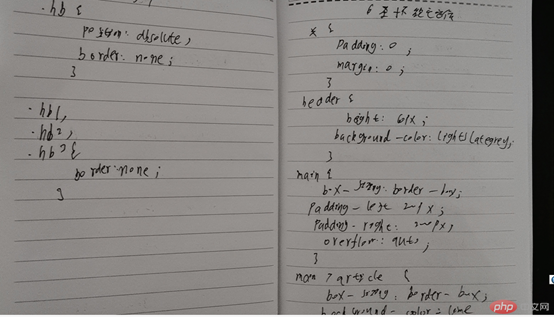 .hb {
position: absolute;
border: none;
}
.hb1,
.hb2,
.hb3{
border:none;
}
* {
padding: 0;
margin: 0;
}
header {
height:
background-color: lightslategrey;
}
main {
box-sizing: border-box;
padding-left:
padding-right:
overflow: auto;
}
main > article {
box-sizing: border-box;
background-color: lime
php中文网